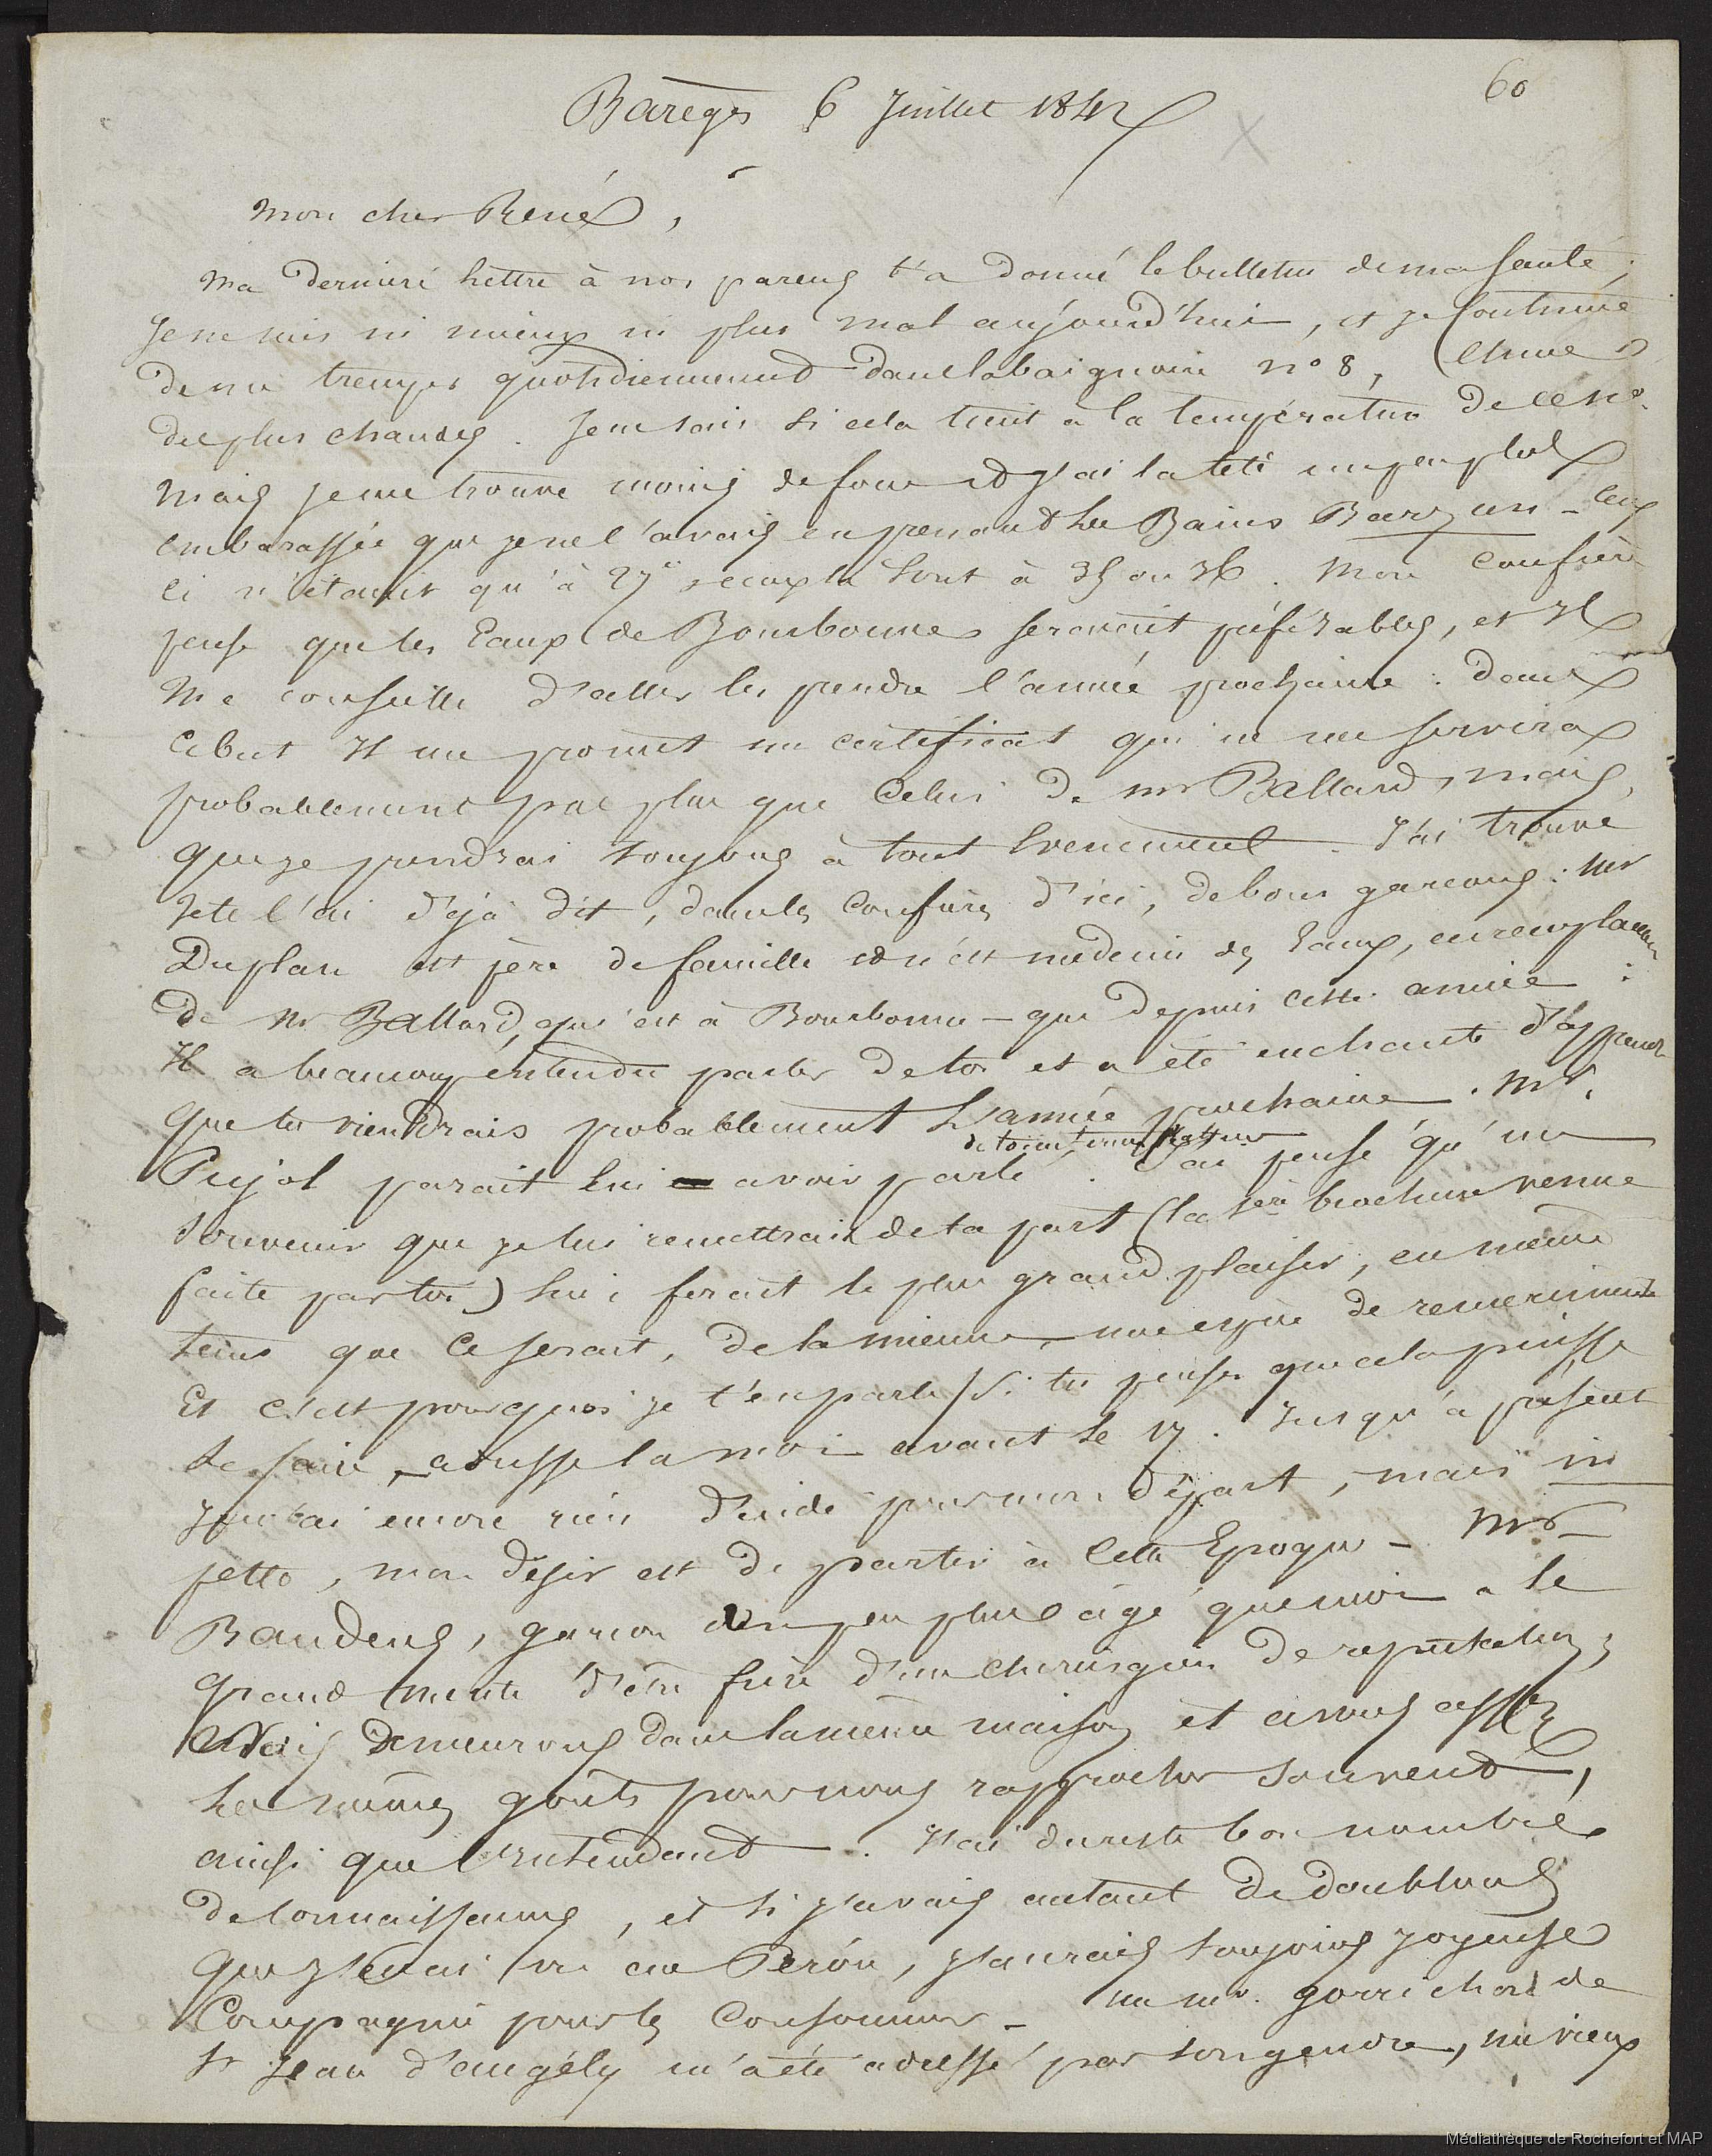 60
Barèges 6 Juillet 1842
Mon cher René,
Ma derniere lettre à nos parens t'a donné le bulletin de ma santé;
Je ne suis ni mieux ni plus mal aujourd'hui, et je continue
de me tremper quotidiennement dans la baignoire n° 8, l'une
des plus chaudes. Je ne sais si cela tient à la température de ce n°.
mais je me trouve moins de force et j'ai la tete un peu plus
embarassée que je ne l'avais en prenant les Bains Barzun - ceux
ci n'étaient qu'à 27° ceux là sont à 35 ou 36. Mon confrère
pense que les Eaux de Bourbonne seraient préférables, et Il
me conseille d'aller les prendre l'année prochaine: dans
ce but Il me promet un certificat qui ne me servira
probablement pas plus que celui de mr Ballard, mais,
que je prendrai toujours à tout Evenement. J'ai trouvé
Je te l'ai déjà dit, dans les confrères d'ici, de bons garçons: Mr
Duplan est père de famille et n'est medecin des Eaux, en remplacem
de Mr Ballard, qui est à Bourbonne - que depuis cette année:
Il a beaucoup entendu parler de toi et a été enchanté d'apprendr
que tu viendrais probablement L'année prochaine. Mr.
Pujol parait lui avoir parlé de toi en termes flatteurs. J'ai pensé qu'un
souvenir que je lui remettrais de ta part (la 1ère brochure venue
faite par toi) lui ferait le plus grand plaisir, en meme
tems que ce serait, de la mienne, une espèce de remerciments
Et c'est pourquoi je t'en parle / Si tu penses que cela puisse
se faire, adresse la moi avant le 17. Jusqu'à présent
Je n'ai encore rien décidé pour mon départ, mais in
petto, mon désir est de partir à cette Epoque - Mr
Baudens, garçon un peu plus âgé que moi a le
grand mérite d'être frère d'un chirurgien de reputation;
Nous demeurons dans la même maison et avons assez
les mêmes goûts pour nous rapprocher souvent,
ainsi que l'Intendant. J'ai du reste bon nombre
de connaissances, et si j'avais autant de doublons
que j'en ai vu au Pérou, j'aurais toujours joyeuse
Compagnie pour les consommer -
un mr. gorrichon de
St Jean d'angély m'a été adressé par son gendre, un vieux
Médiathèque de Rochefort et MAP